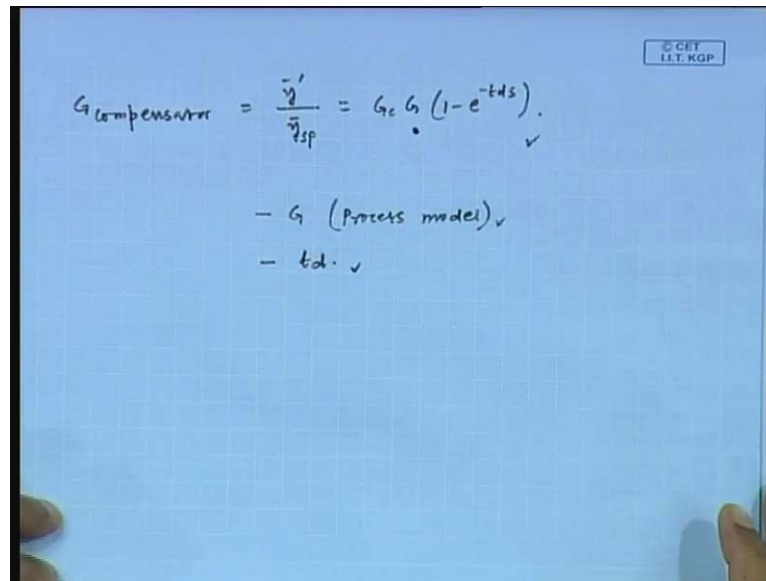 © CET
I.I.T. KGP
G compensator = ȳ' / ȳsp = Gc G (1 - e^-tds).
- G (Process model)
- td.